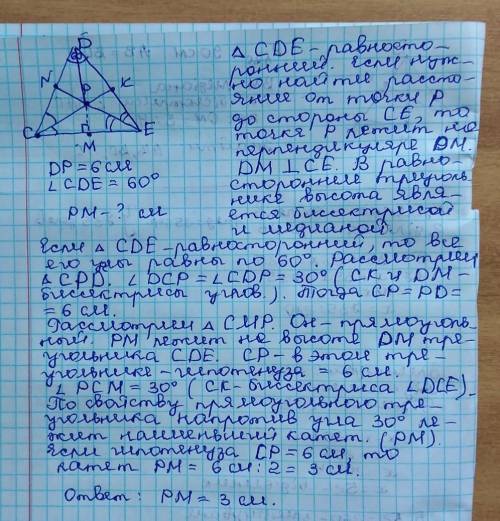 D
N
K
P
C
E
M
DP = 6 см
∠CDE = 60°
PM - ? см
△ CDE - равносто-
ронний. Если нуж-
но найти рассто-
яние от точки P
до стороны CE, то
точка P лежит на
перпендикуляре DM.
DM ⊥ CE. В равно-
стороннем треуголь-
нике высота явля-
ется биссектрисой
и медианой.
Если △ CDE - равносторонний, то все
его углы равны по 60°. Рассмотрим
△ CPD. ∠DCP = ∠CDP = 30° (CK и DM -
биссектрисы углов). Тогда CP = PD =
= 6 см.
Рассмотрим △ CMP. Он - прямоуголь-
ный. PM лежит на высоте DM тре-
угольника CDE. CP - в этом тре-
угольнике - гипотенуза = 6 см.
∠ PCM = 30° (CK - биссектриса ∠DCE).
По свойству прямоугольного тре-
угольника напротив угла 30° ле-
жит наименьший катет. (PM).
Если гипотенуза CP = 6 см, то
катет PM = 6 см : 2 = 3 см.
Ответ: PM = 3 см.